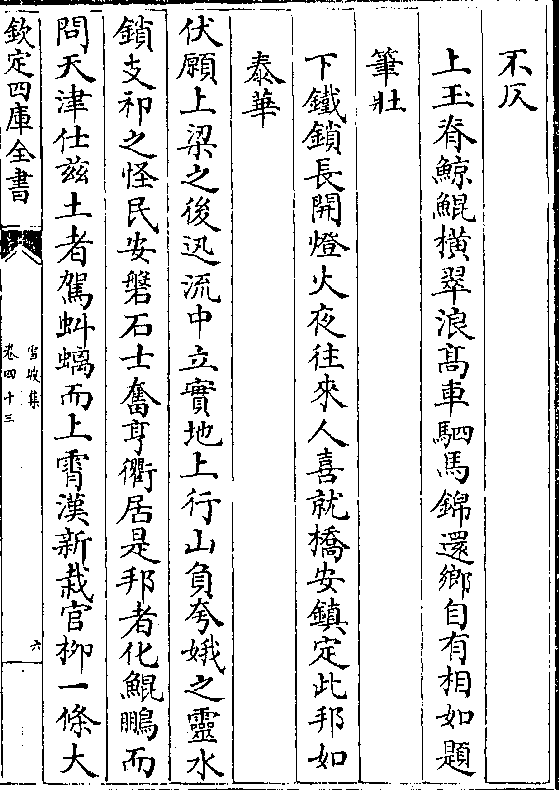 不仄
上玉脊鯨鯤橫翠浪髙車駟馬錦還鄉自有相如題
筆壯
下鐵鎖長開燈火夜往來人喜就橋安鎮定此邦如
泰華
伏願上梁之後迅流中立實地上行山負夸娥之靈水
鎖支祁之怪民安磐石士奮亨衢居是邦者化鯤鵬而
問天津仕兹土者駕蚪螭而上霄漢新栽官柳一條大
欽定四庫全書
雪坡集
卷四十三
六